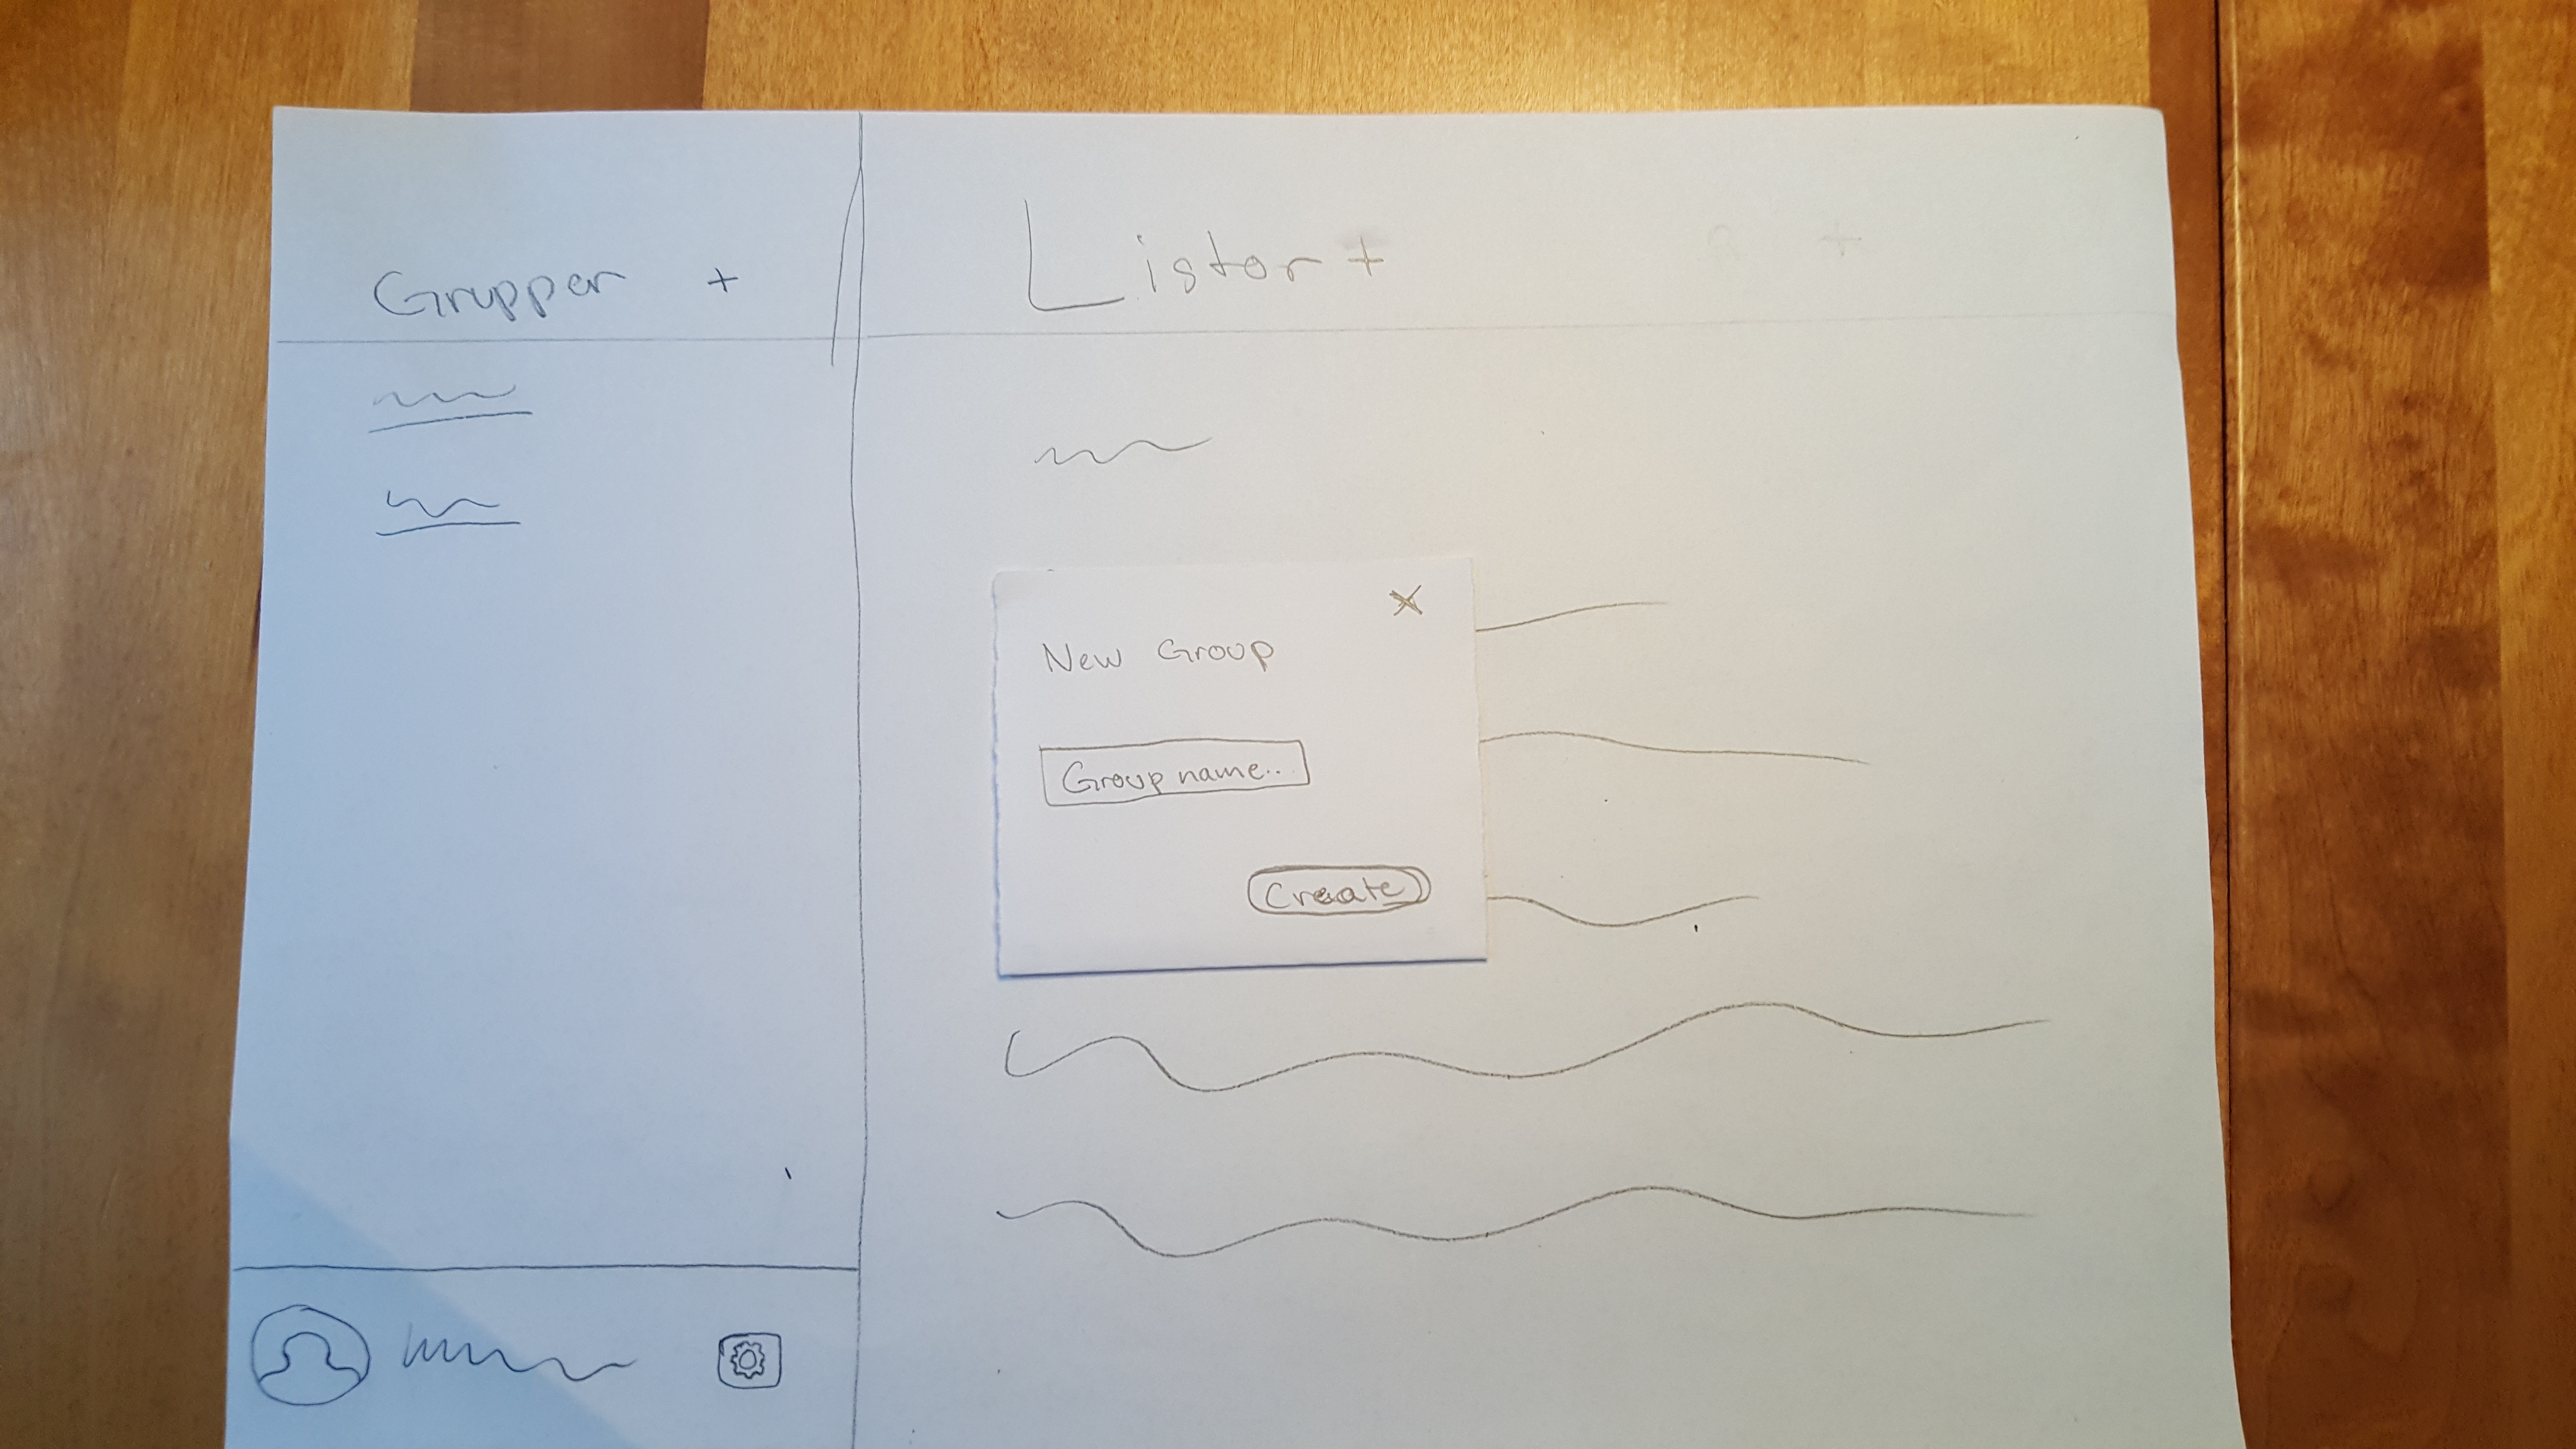 Grupper +
Listor +
New Group X
Group name...
Create